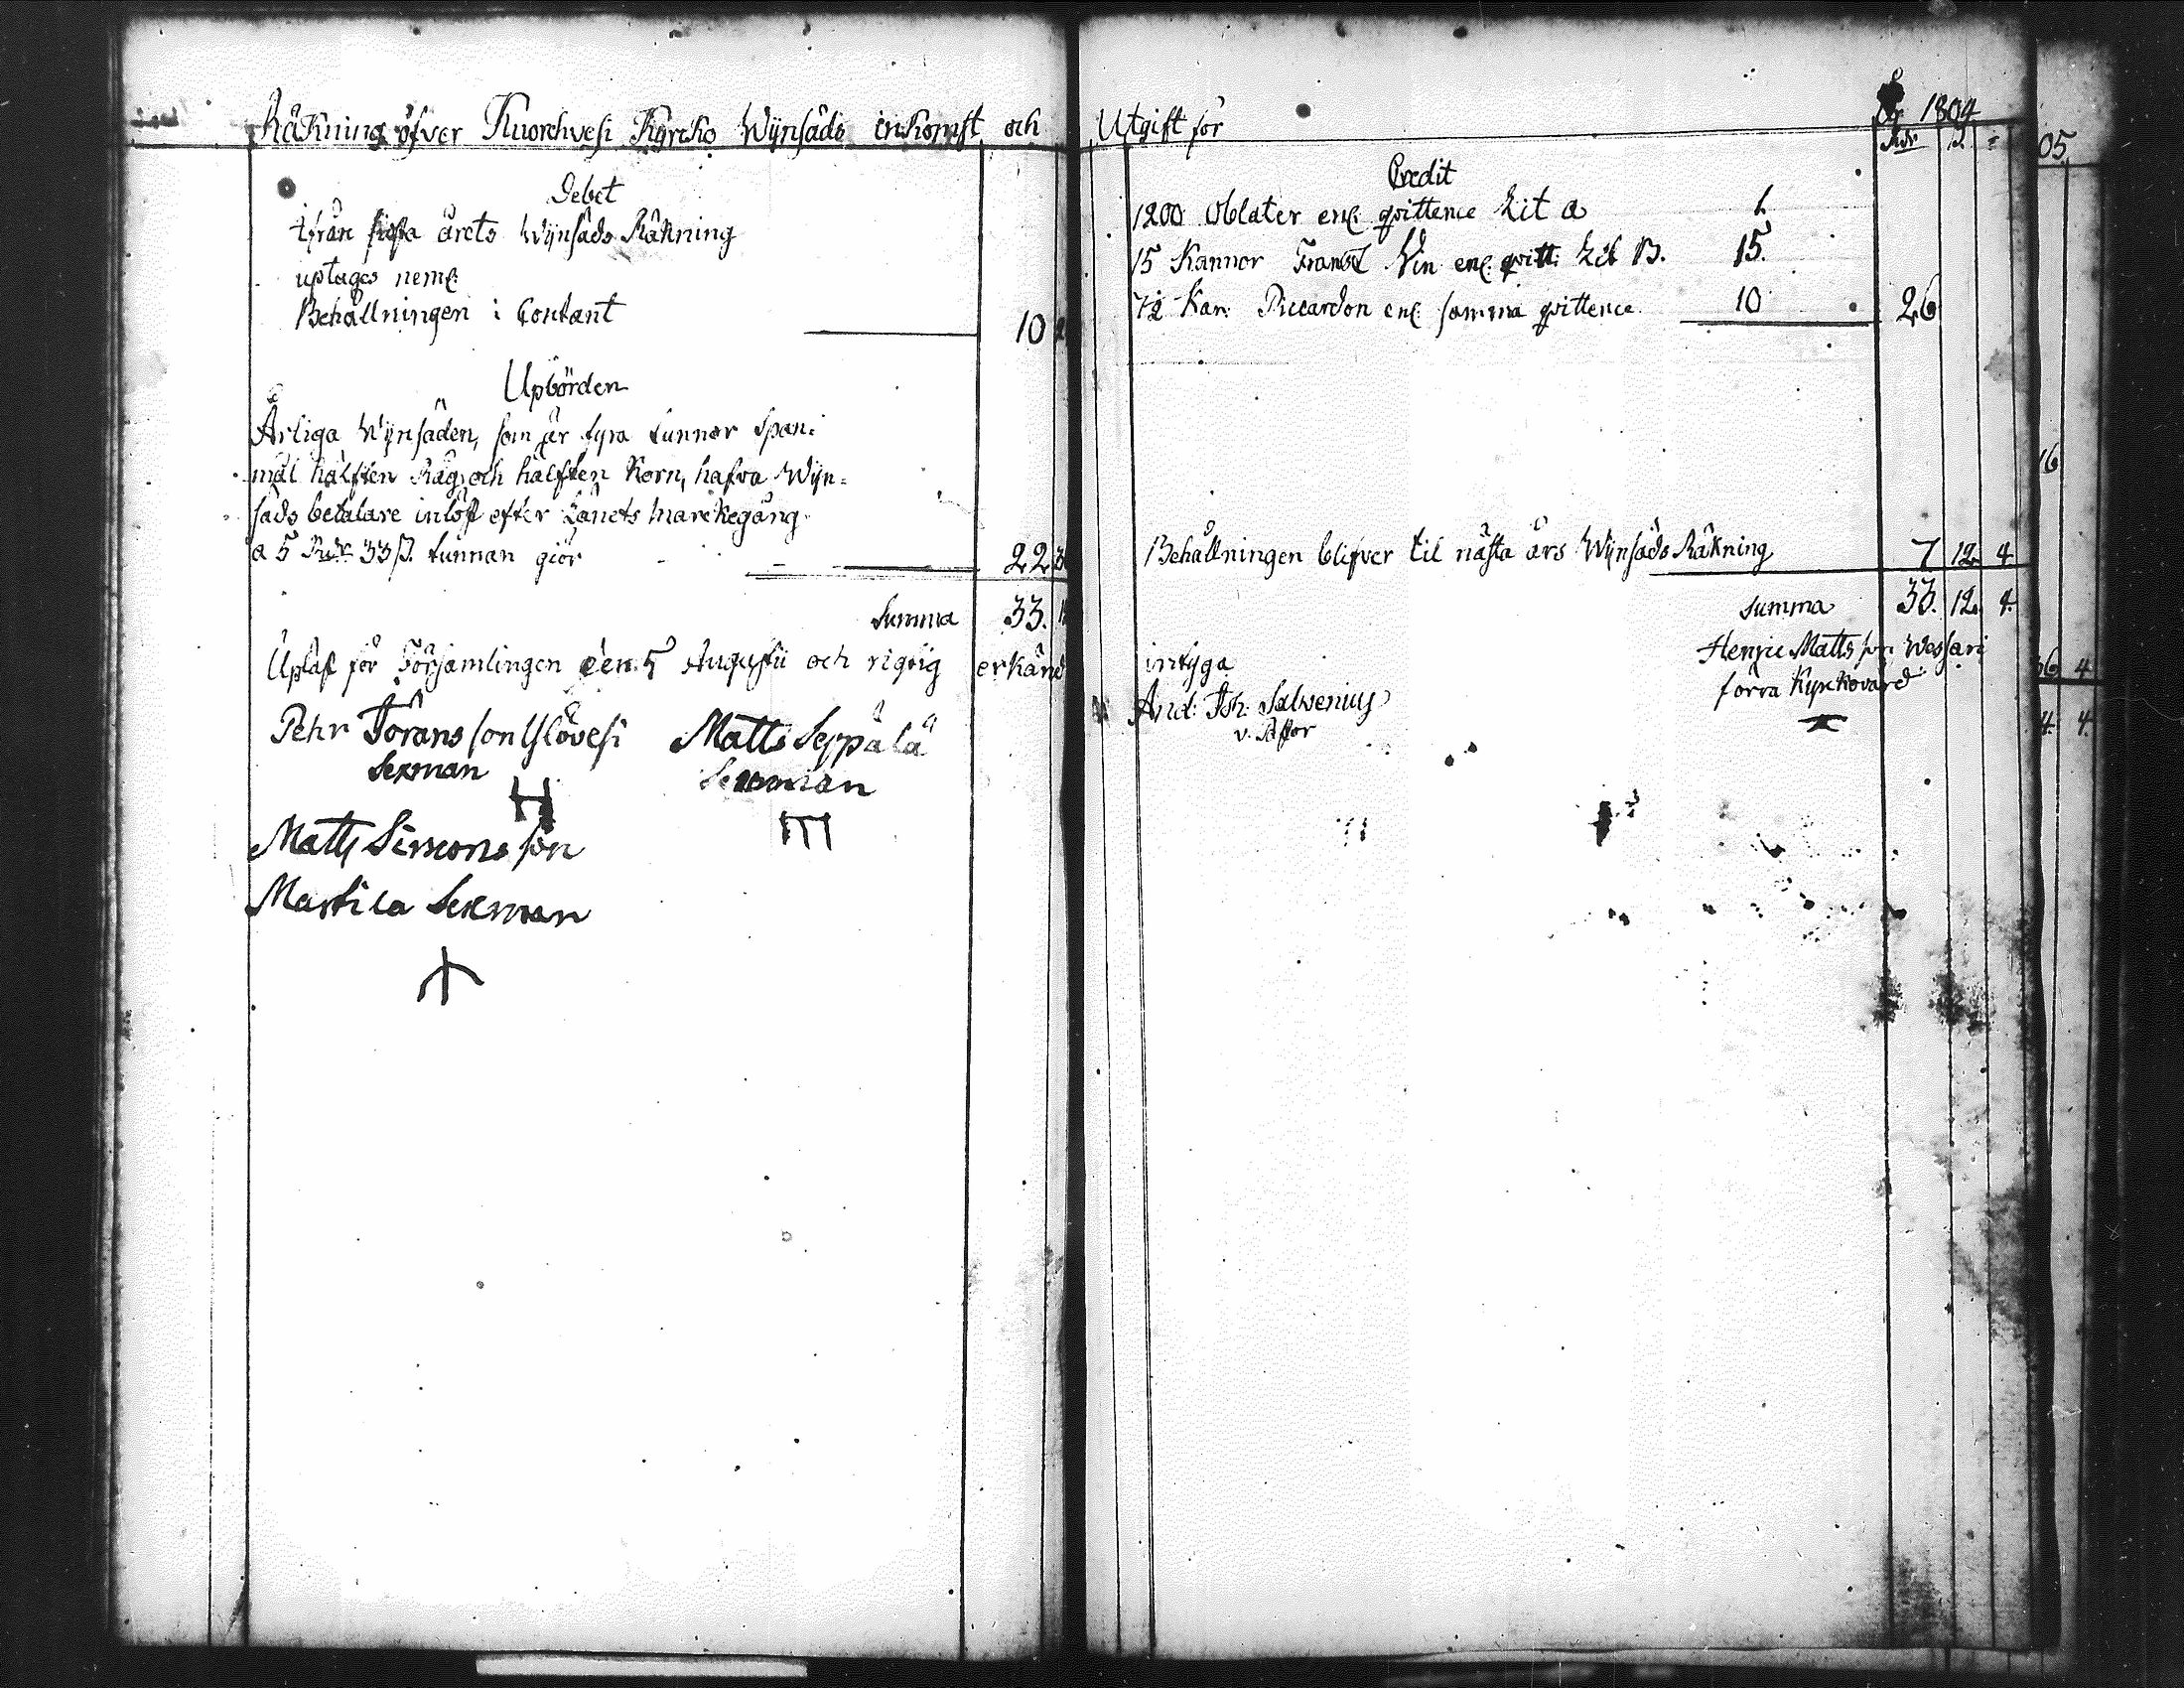 Räkning öfver Kuorehvesi Kyrcko Wynsäds inkomst och
Debet
ifrån sista årets Wynsäds Räkning
uptages neml:
Behållningen i Contant 10
Upbörden
Årliga Wynsäden, som är fyra tunnor Span-
mål hälften Råg och hälften Korn, hafva Wyn-
säds betalare inlöst efter Länets markegång
a 5 Rdr 33 ß. tunnan giör 22
Summa 33.
Upläst för Församlingen den 5 Augustii och rigtig erkänd
Pehr Göransson Ylövesi
Sexman
Matts Seppälä
Sexman
Matts Simonsson
Martila Sexman
Utgift för År 1804
Rdr
Credit
1200 Oblater enl: qvittence Lit a 1.
15 Kannor Fransk Vin enl: qvitt: Lit B. 15.
7½ Kan: Piccardon enl: samma qvittence 10 26
Behållningen blifver til nästa års Wynsäds Räkning 7 12 4
Summa 33. 12. 4.
intyga
And: Joh: Salvenius
v. Pastor
Henric Mattsson Wessari
förra Kyrckovärd
05
16
36 4
4. 4.